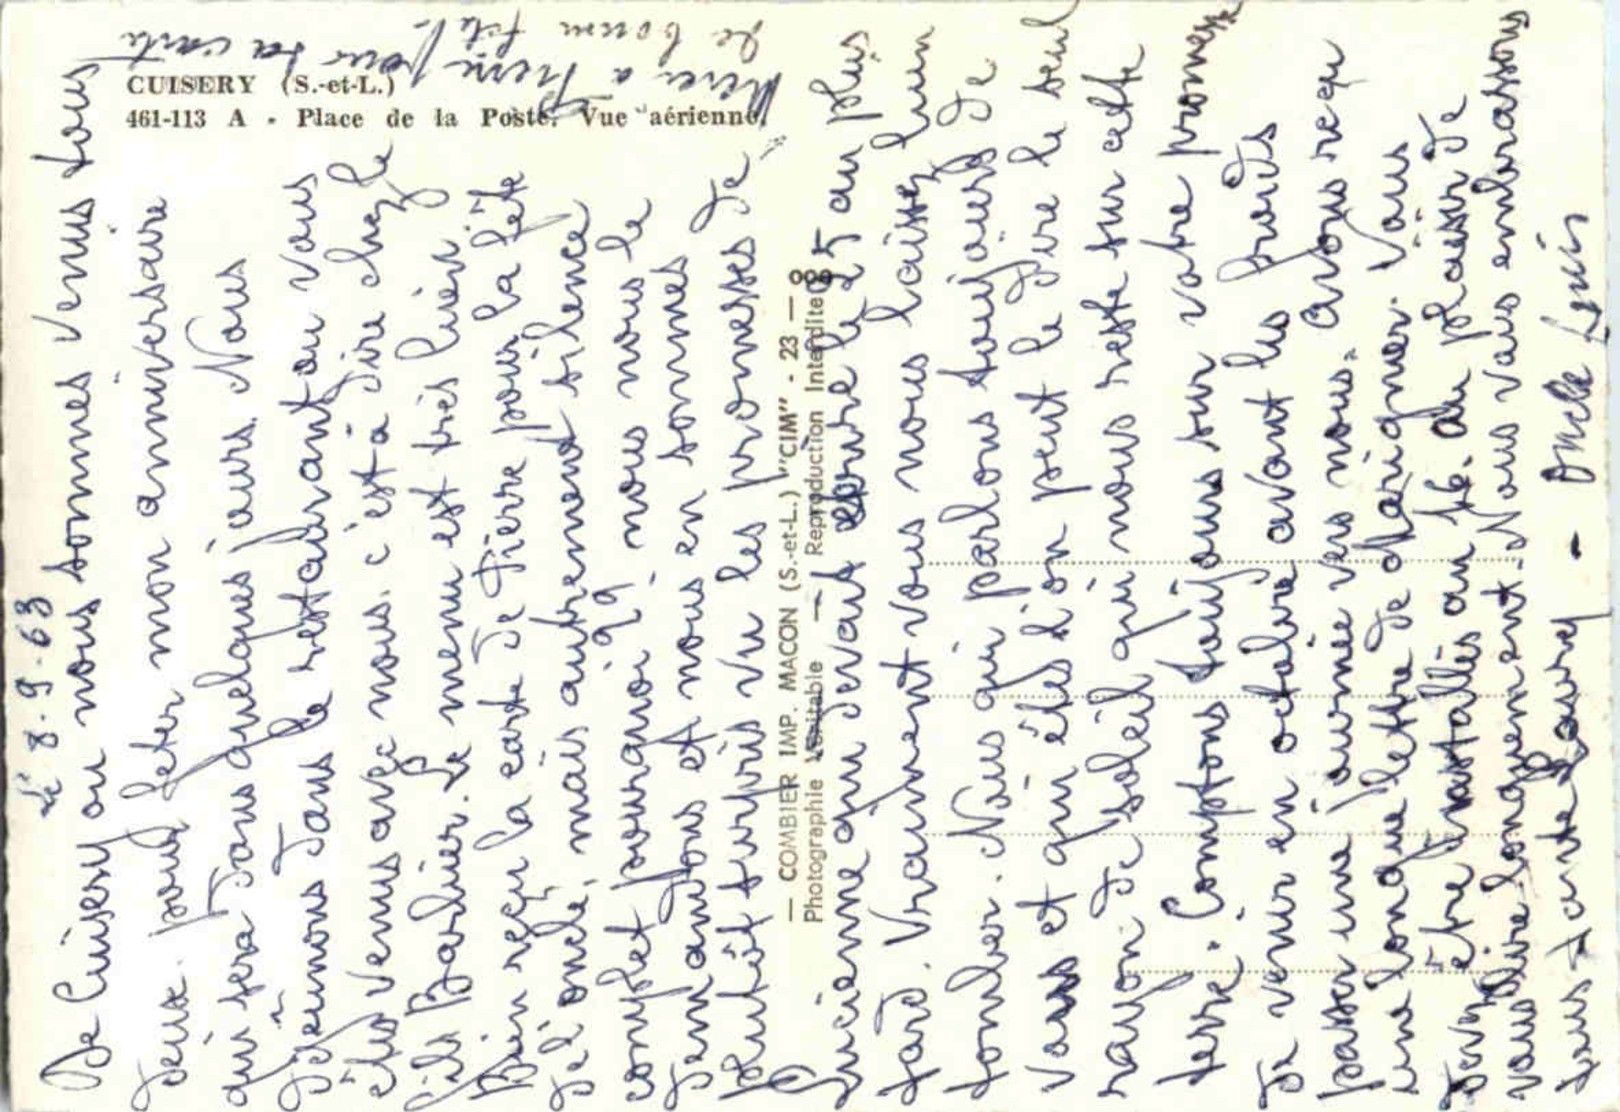 le 8.9.63
De Cuisery ou nous sommes venus tous
deux pour feter mon anniversaire
qui sera dans quelques jours. Nous
déjeunons dans le restaurant ou vous
êtes venus avec nous. c'est à dire chez le
fils Barbier. Le menu est très bien.
Bien reçu la carte de Pierre pour la fête
de l'oncle, mais autrement silence
complet pourquoi ?? nous nous le
demandons et nous en sommes
plutôt surpris vu les promesses de
Lucienne qui devait écrire le 25 au plus
tard. Vraiment vous nous laissez bien
tomber. Nous qui parlons toujours de
vous et qui êtes l'on peut le dire le seul
rayon de soleil qui nous reste sur cette
terre. Comptons toujours sur votre promesse
de venir en octobre avant les froids
passer une journée vers nous. avons reçu
une longue lettre de Marignier. Vous
devez être installés au 16. Au plaisir de
vous lire longuement. Nous vous embrassons
tous tante - Oncle Louis
Merci a Pierre pour sa carte
de bonne fête
CUISERY (S.-et-L.)
461-113 A - Place de la Poste. Vue aérienne.
— COMBIER IMP. MACON (S.-et-L.) "CIM" - 23 —
Photographie Véritable — Reproduction Interdite